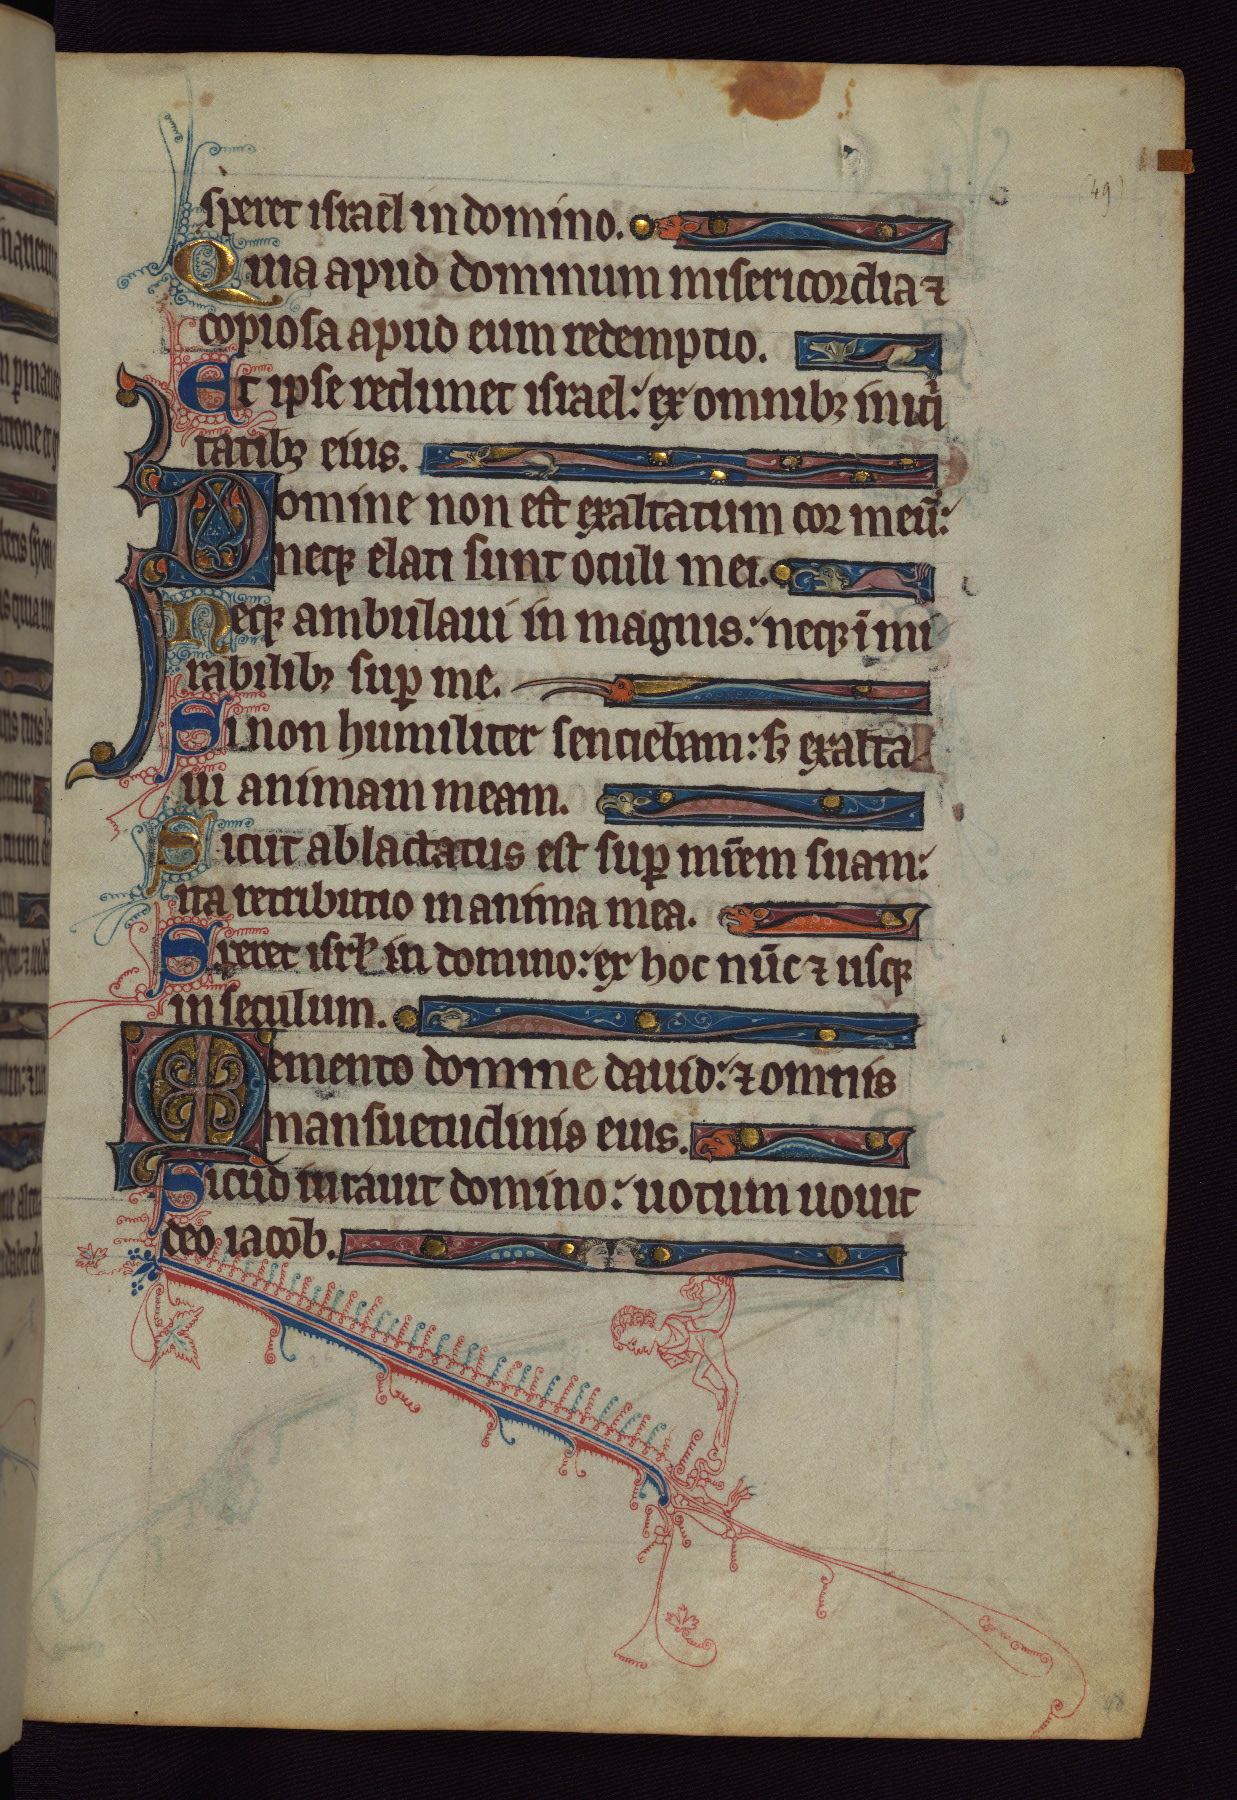 speret israel in domino.
Quia apud dominum misericordia ⁊
copiosa apud eum redemptio.
Et ipse redimet israel: ex omnibꝫ iniqͥ
tatibꝫ eius.
Domine non est exaltatum cor meū:
neqꝫ elati sunt oculi mei.
Neqꝫ ambulaui in magnis: neqꝫ ī mi
rabilibꝫ suꝑ me.
Si non humiliter sentiebam: sꝫ exalta
ui animam meam.
Sicut ablactatus est suꝑ mr̄em suam:
ita retributio in anima mea.
Speret isrł in domino: ex hoc nūc ⁊ usqꝫ
in seculum.
Memento domine dauid: ⁊ omnis
mansuetudinis eius.
Sicud iurauit domino: uotum uouit
deo iacob.
(49)
48